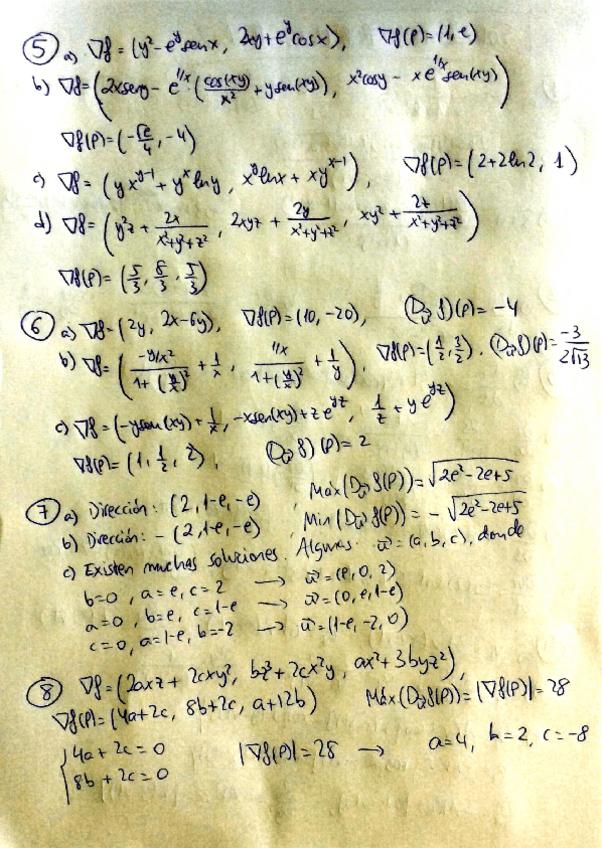 ⑤ a) ∇f = (y² - e^y sen x, 2xy + e^y cos x), ∇f(P) = (1, e)
b) ∇f = (2x sen y - e^{1/x} (cos(xy)/x² + y sen(xy)), x² cos y - x e^{1/x} sen(xy))
∇f(P) = (-√e/4, -4)
c) ∇f = (y x^{y-1} + y^x ln y, x^y ln x + x y^{x-1}), ∇f(P) = (2+2ln2, 1)
d) ∇f = (y²z + 2x/(x²+y²+z²), 2xyz + 2y/(x²+y²+z²), xy² + 2z/(x²+y²+z²))
∇f(P) = (5/3, 8/3, 5/3)
⑥ a) ∇f = (2y, 2x-6y), ∇f(P) = (10, -20), (D_u⃗ f)(P) = -4
b) ∇f = ((-y/x²)/(1+(y/x)²) + 1/x, (1/x)/(1+(y/x)²) + 1/y), ∇f(P) = (1/2, 3/2), (D_u⃗ f)(P) = -3/(2√13)
c) ∇f = (-y sen(xy) + 1/x, -x sen(xy) + z e^{yz}, 1/z + y e^{yz})
∇f(P) = (1, 1/2, 2), (D_u⃗ f)(P) = 2
⑦ a) Dirección: (2, 1-e, -e) Máx(D_u⃗ f(P)) = √(2e²-2e+5)
b) Dirección: -(2, 1-e, -e) Mín(D_u⃗ f(P)) = -√(2e²-2e+5)
c) Existen muchas soluciones. Algunas u⃗ = (a, b, c), donde
b=0, a=e, c=2 → u⃗ = (e, 0, 2)
a=0, b=e, c=1-e → u⃗ = (0, e, 1-e)
c=0, a=1-e, b=-2 → u⃗ = (1-e, -2, 0)
⑧ ∇f = (2axz + 2cxy², bz³ + 2cx²y, ax² + 3byz²),
∇f(P) = (4a+2c, 8b+2c, a+12b) Máx(D_u⃗ f(P)) = |∇f(P)| = 28
{4a + 2c = 0 |∇f(P)| = 28 → a=4, b=2, c=-8
8b + 2c = 0